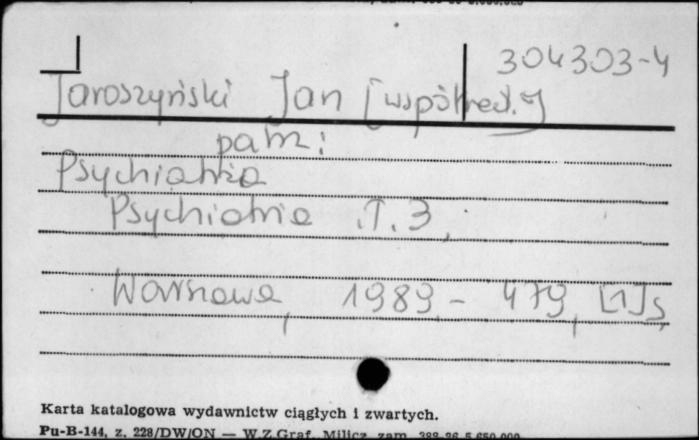 304303-4
Jaroszyński Jan [współred.]
patrz:
Psychiatria
Psychiatria .T.3,
Warszawa, 1989,- 479, [1]s,
Karta katalogowa wydawnictw ciągłych i zwartych.
Pu-B-144, z. 228/DW/ON — W.Z.Graf., Milicz, zam.